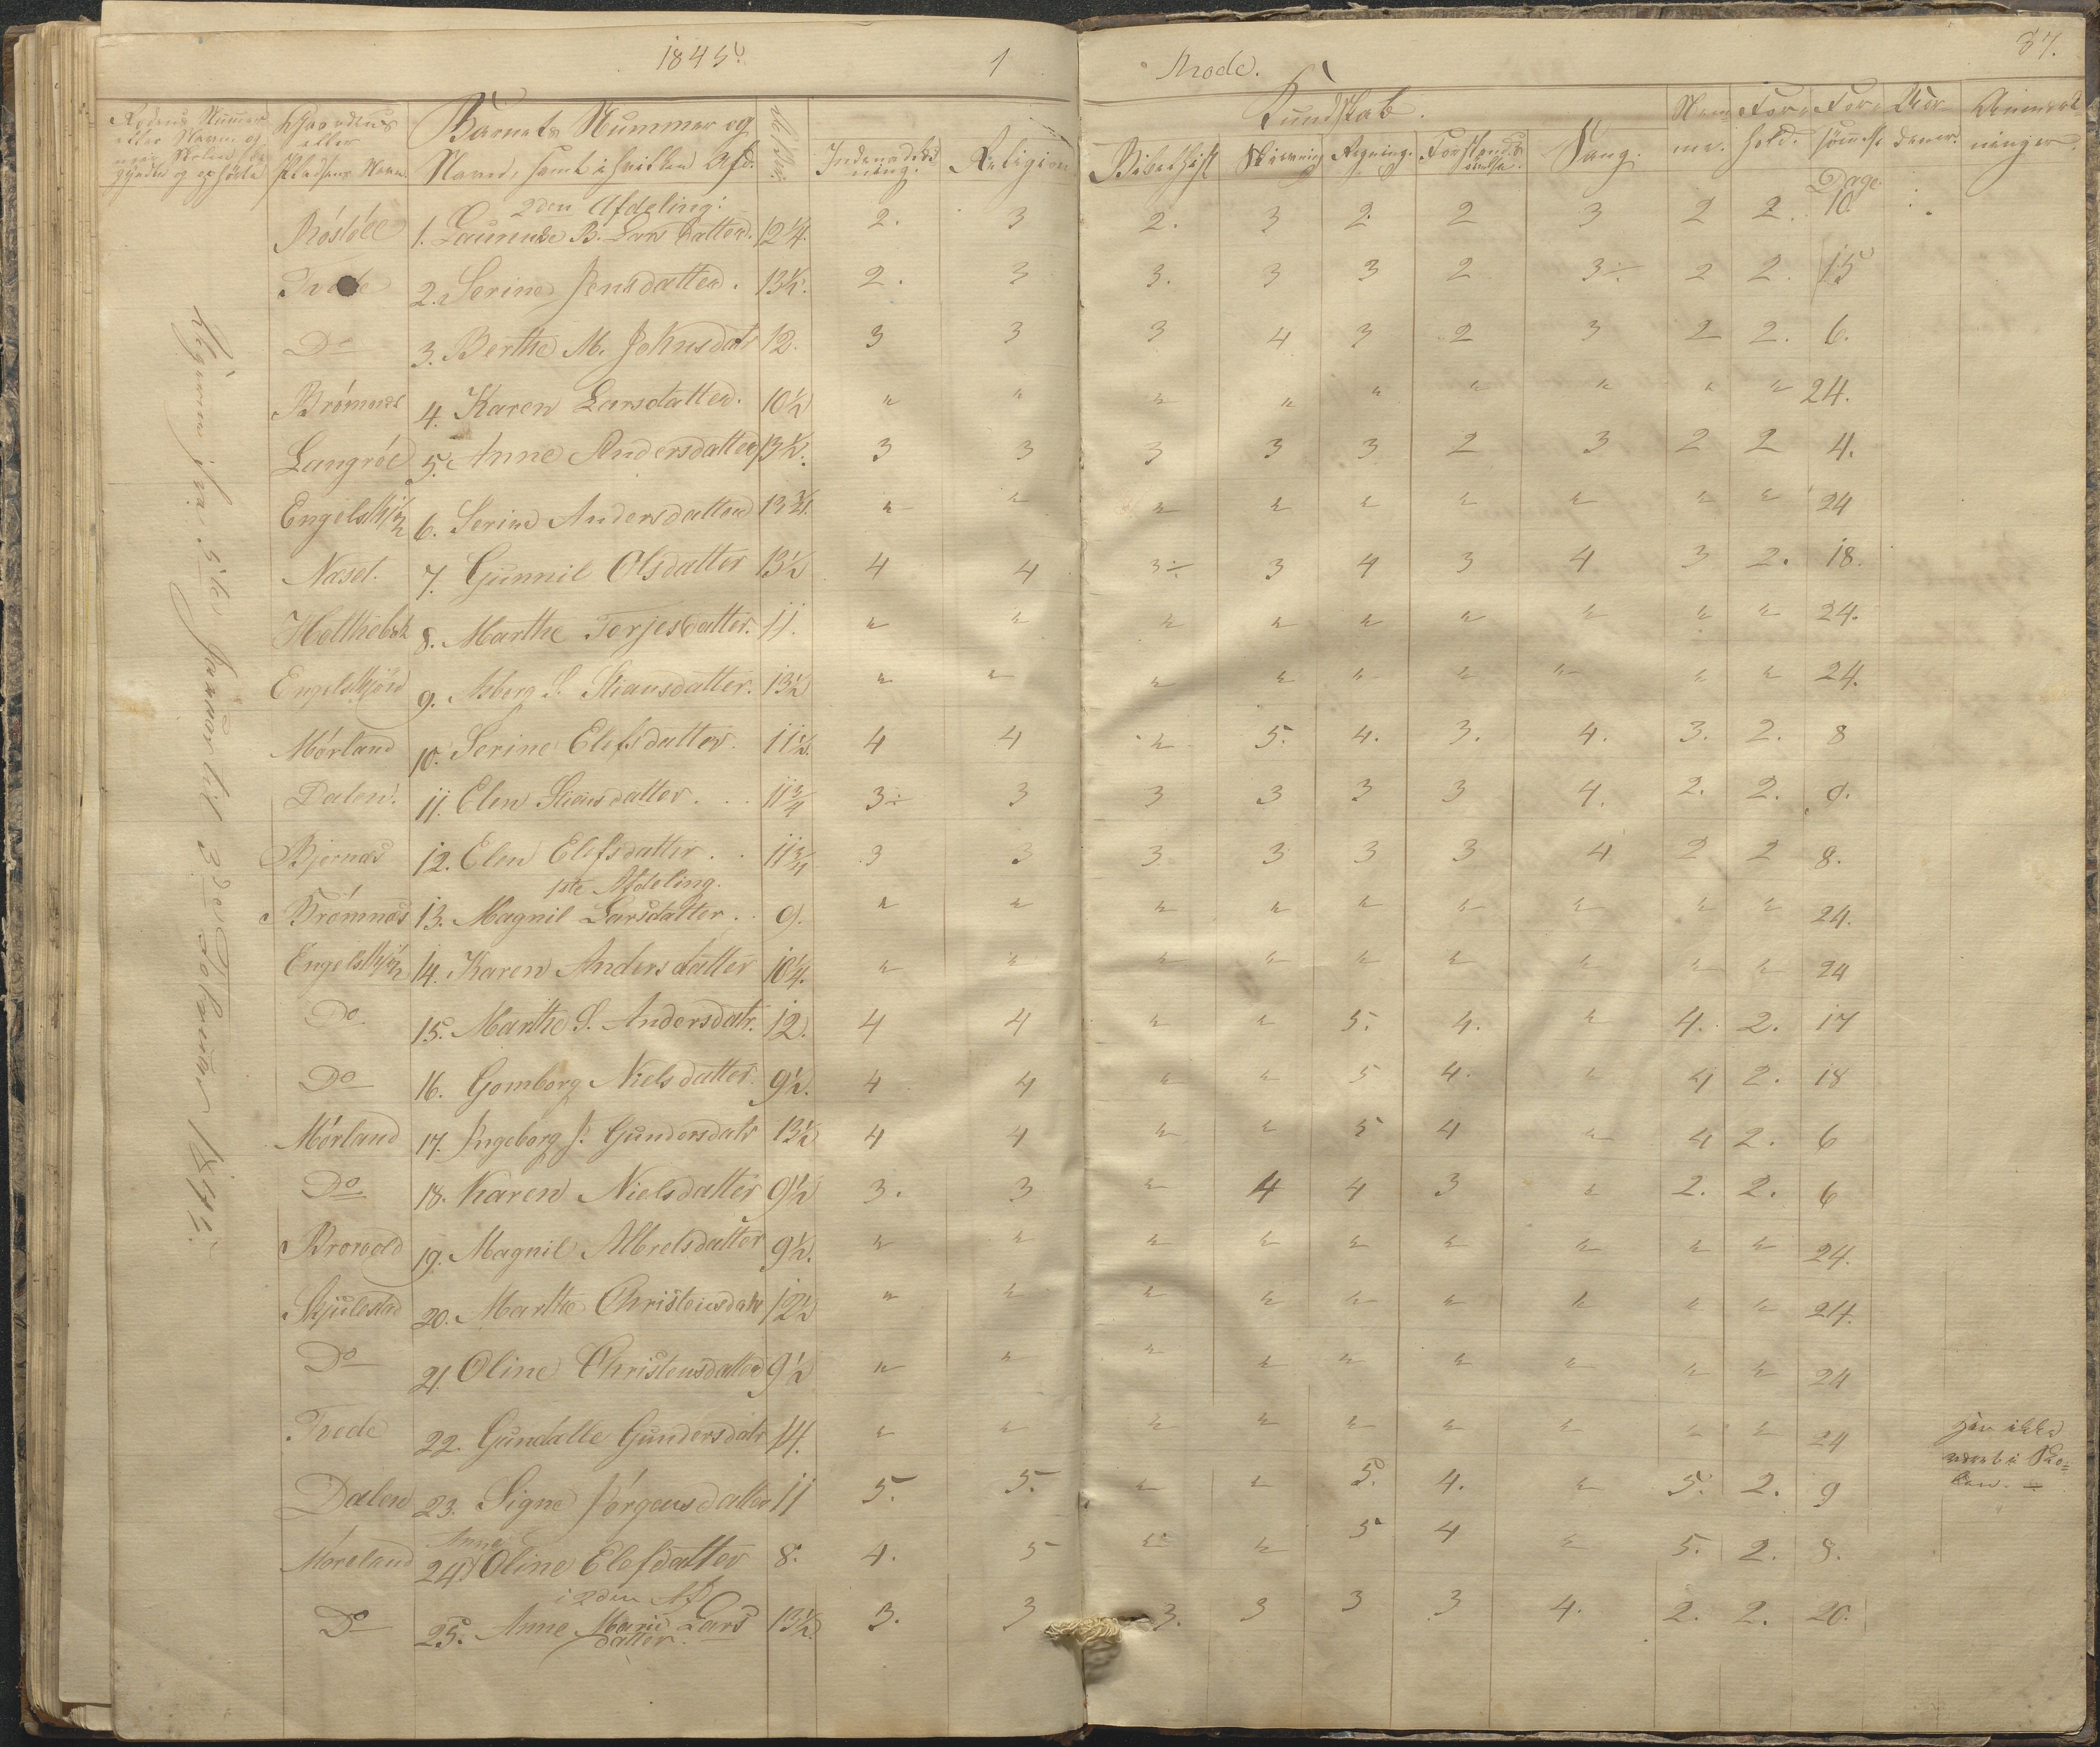 1845. 1 Rode. 37.
Rodens Nummer eller Navn, og
Gaardens eller Pladsens Navn
Barnets Nummer og Navn, samt i hvilken Afd.
Indenadslæsning. Religion
Kundskab.
Bibelhist Skrivning Regning. Forstandsøvelse. Sang.
Nemme. Forhold. Forsømmelse Anmærkninger.
2den Afdeling. Dage.
1. B. Lars datter. 12 1/4. 2. 3 2. 3 2 2 3 2 2. 10
2. Serine Jensdatter. 13 1/2. 2. 3 3. 3 3 2 3÷ 2 2. 15
Do 3. Berthe M. Johnsdatr 12. 3 3 3 4 3 2 3 2 2. 6.
Brömnes 4. Karen Larsdatter. 10 1/2 " " " " " " " " " 24.
Langröe 5. Anne Andersdatter 13 1/2. 3 3 3 3 3 2 3 2 2 4.
6. Serine Andersdatter 13 3/4. " " " " " " " " " 24
Næset. 7. Gunnil Olsdatter 13 1/2 4 4 3÷ 3 4 3 4 3 2. 18.
Holthebæk 8. Marthe Torjesdatter. 11. " " " " " " " " " 24.
9. Asberg S. Stiansdatter. 13 1/2 " " " " " " " " " 24.
Mörland 10. Serine Elefsdatter. 11 1/2. 4 4 " 5. 4. 3. 4. 3. 2. 8
Dalen. 11. Elen Stiansdatter. . . 11 3/4 3÷ 3 3 3 3 3 4. 2. 2. 9.
Bjernæs 12. Elen Elefsdatter. . . 11 3/4 3 3 3 3 3 3 4 2 2 8.
1ste Afdeling.
Brömnæs 13. Magnil Larsdatter. . 9. " " " " " " " " " 24.
14. Karen Andersdatter 10 1/4. " " " " " " " " " 24
Do 15. Marthe S. Andersdatr. 12. 4 4 " " 5. 4. " 4. 2. 17
Do 16. Gomborg Nielsdatter. 9 1/2. 4 4 " " 5 4. " 4 2. 18
Mörland 17. Ingeborg J. Gundersdatr 13 1/2 4 4 " " 5 4 " 4 2. 6
Do 18. Karen Nielsdatter 9 1/2 3. 3 " 4 4 3 " 2. 2. 6
19. Magnil 9 1/2. " " " " " " " " " 24.
Skjulestad 20. Marthe Christensdatr 12 1/2 " " " " " " " " " 24.
Do 21. Oline Christensdatter 9 1/2 " " " " " " " " " 24
Tvede 22. Gundersdatr 14. " " " " " " " " " 24 har ikke
været i Sko=
len. ÷
Dalen 23. Signe Jörgensdatter 11 5. 5. " " 5. 4. " 5. 2. 9
Möreland 24. Anne Oline Elefsdatter 8. 4. 5 " " 5 4 " 5. 2. 8.
i 2den Af
Do 25. Anne Marie Larsdatter. 13 1/2. 3. 3 3. 3 3 3 4. 2. 2. 20.
fra 3die Januar til 3die Februar 1845.